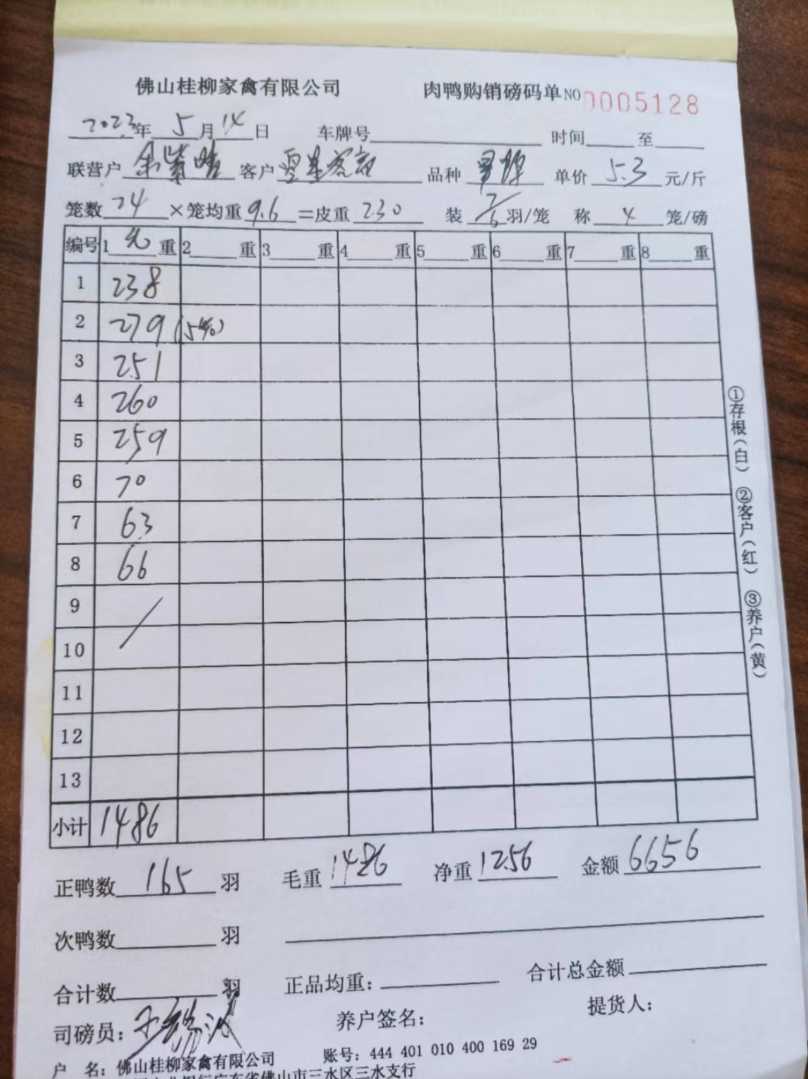 佛山桂柳家禽有限公司 肉鸭购销磅码单 NO 0005128
2023年 5月14日 车牌号 时间 至
联营户 客户 品种 单价 5.3 元/斤
笼数 24 ×笼均重 9.6 =皮重 230 装 7/6 羽/笼 称 4 笼/磅
编号 1 重 2 重 3 重 4 重 5 重 6 重 7 重 8 重
1 238
2 279 (5笼)
3 251
4 260
5 259
6 70
7 63
8 66
9
10
11
12
13
小计 1486
正鸭数 165 羽 毛重 1486 净重 1256 金额 6656
次鸭数 羽
合计数 羽 正品均重: 合计总金额
司磅员: 养户签名: 提货人:
户 名: 佛山桂柳家禽有限公司 账号: 444 401 010 400 169 29
佛山市三水区三水支行
①存根(白) ②客户(红) ③养户(黄)